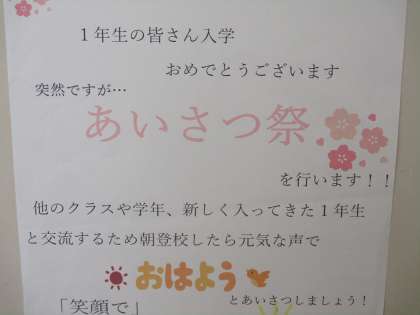 １年生の皆さん入学
おめでとうございます
突然ですが…
あいさつ祭
を行います！！
他のクラスや学年、新しく入ってきた１年生
と交流するため朝登校したら元気な声で
おはよう
とあいさつしましょう！
「笑顔で」